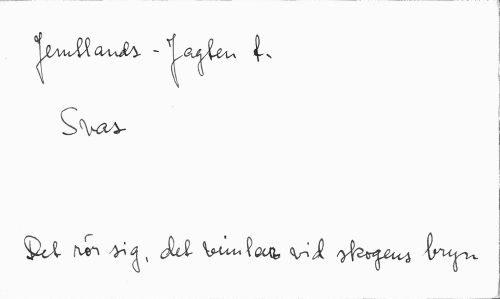 Jemtlands-Jagten t.
Svas
Det rör sig, det vimlar vid skogens bryn